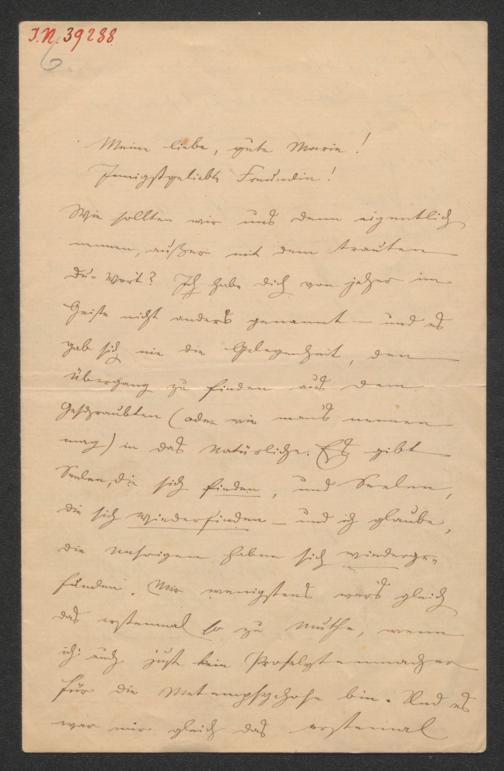 I.N. 39288
6
Meine liebe, gute Marie!
Innigstgeliebte Freundin!
Wie sollten wir uns denn eigentlich
nennen, außer mit dem trauten
Du-Wort? Ich habe dich von jeher im
Geiste nicht anders genannt – und es
gab sich nie die Gelegenheit, den
Übergang zu finden aus dem
Geschraubten (oder wie man's nennen
mag) in das Natürliche. Es gibt
Seelen, die sich finden, und Seelen,
die sich wiederfinden – und ich glaube,
die unsrigen haben sich wiederge-
funden. Mir wenigstens war's gleich
das erstemal so zu Muthe, wenn
ich auch just kein Proselytenmacher
für die Metempsychose bin. Und es
war mir gleich das erstemal